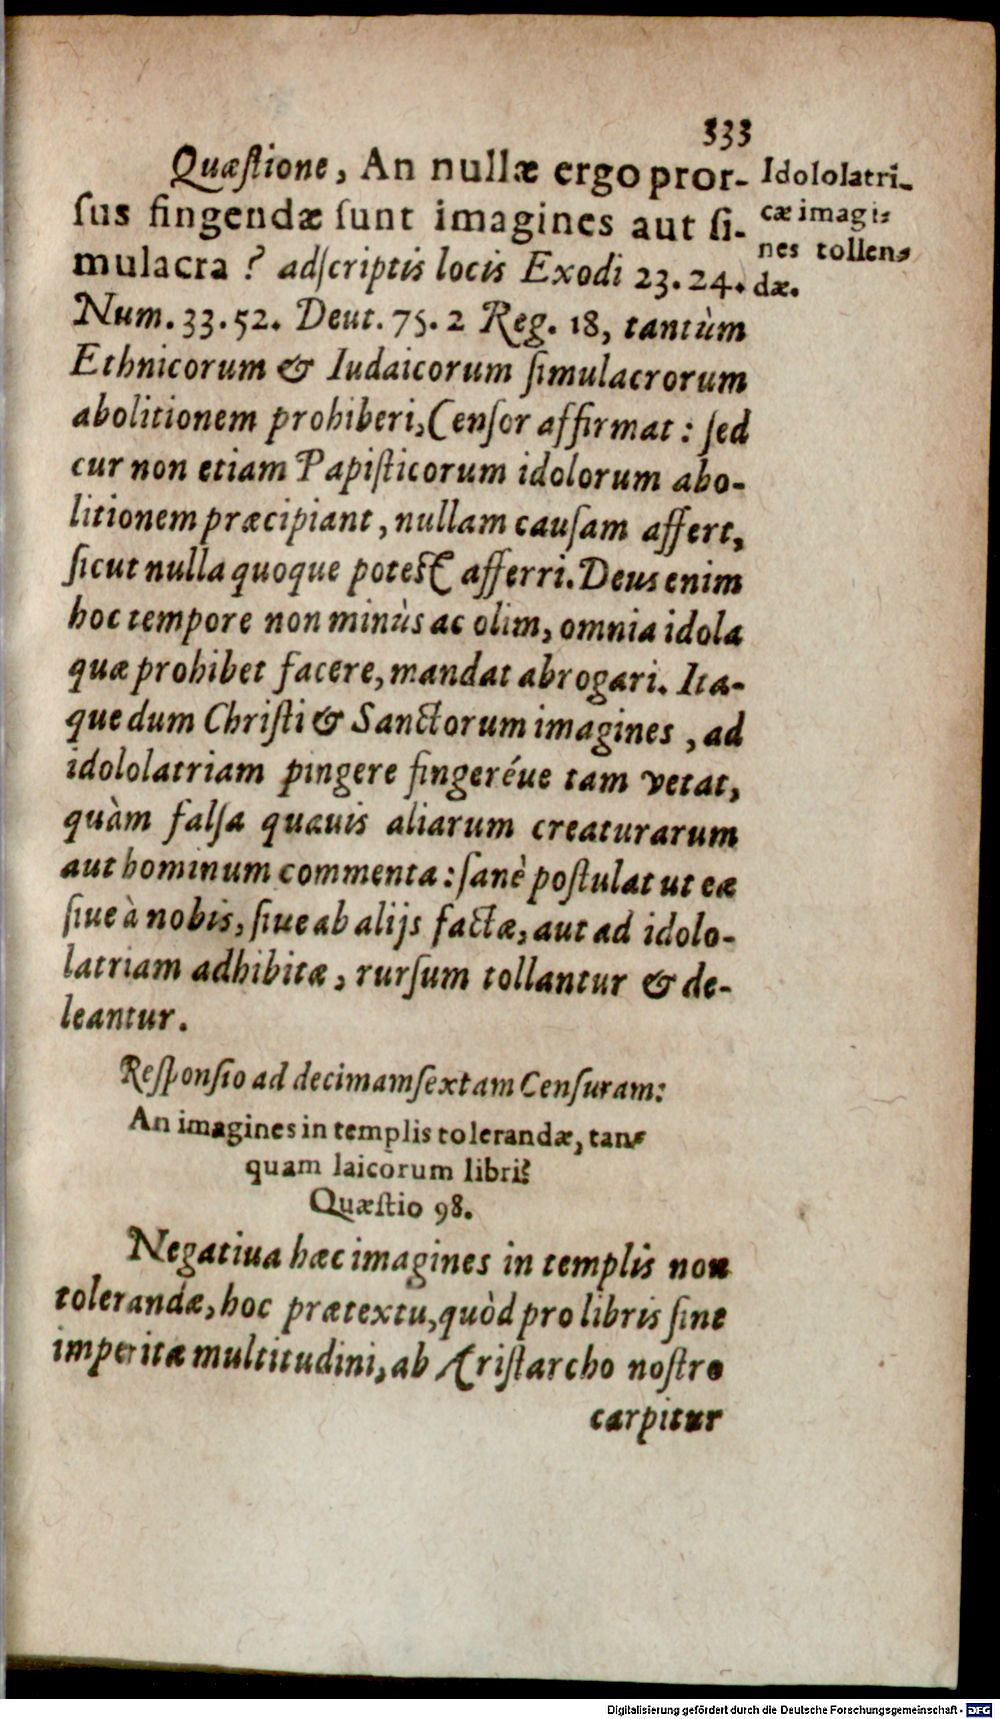 333
Quæſtione, An nullæ ergo pror-
ſus fingendæ ſunt imagines aut ſi-
mulacra? adſcriptis locis Exodi 23.24.
Num. 33.52. Deut. 75. 2 Reg. 18, tantùm
Ethnicorum & Iudaicorum ſimulacrorum
abolitionem prohiberi, Cenſor affirmat: ſed
cur non etiam Papiſticorum idolorum abo-
litionem præcipiant, nullam cauſam affert,
ſicut nulla quoque poteſt afferri. Deus enim
hoc tempore non minùs ac olim, omnia idola
quæ prohibet facere, mandat abrogari. Ita-
que dum Chriſti & Sanctorum imagines, ad
idololatriam pingere fingeréue tam vetat,
quàm falſa quauis aliarum creaturarum
aut hominum commenta: ſanè poſtulat ut eæ
ſiue à nobis, ſiue ab alijs factæ, aut ad idolo-
latriam adhibitæ, rurſum tollantur & de-
leantur.
Idololatri-
cæ imagi-
nes tollen-
dæ.
Reſponſio ad decimamſextam Cenſuram:
An imagines in templis tolerandæ, tan-
quam laicorum libri?
Quæſtio 98.
Negatiua hæc imagines in templis non
tolerandæ, hoc prætextu, quòd pro libris ſint
imperitæ multitudini, ab Ariſtarcho noſtro
carpitur
Digitalisierung gefördert durch die Deutsche Forschungsgemeinschaft - DFG